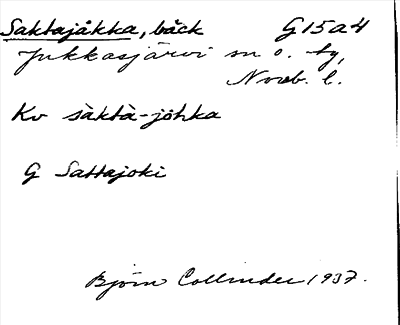 Saktajåkka, bäck G15a4
Jukkasjärvi sn o. by,
Norrb. l.
Kv sàktà-jòhka
G Sattajoki
Björn Collinder 1937.